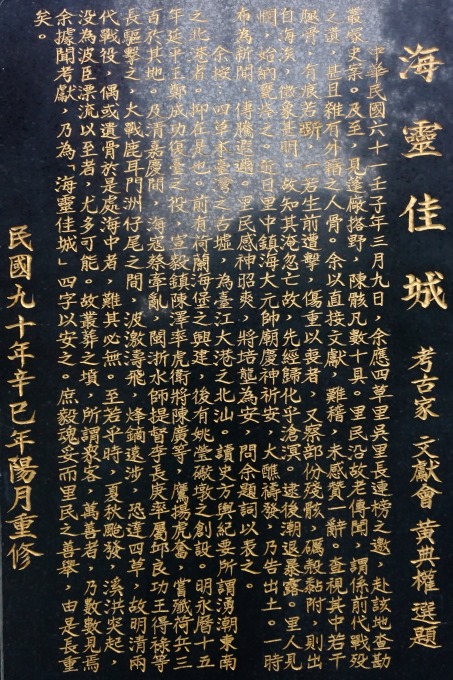 海靈佳城
考古家 文獻會 黃典權 選題
中華民國六十一壬子年三月九日，余應四草里吳里長連榜之邀，赴該地查勘
叢塚史案。及至，見蓬廠捨野，陳骸凡數十具。里民沿故老傳聞，謂係前代戰歿
之遺，甚且雜有外籍之人骨。余以直接文獻，難稽，未感贊一辭。查視其中若干
腿骨，有痕若斷，一若生前遭擊，傷重以喪者，又察部份殘骸，礪殼黏附，則出
自海涘，徵象甚明。故知其淹忽亡故，先經歸化乎滄溟。迨後潮退暴露。里人見
憫，始納甕瘞之。近日里中鎮海大元帥廟慶神祈安，大醮禱發，乃告出土。一時
布為新聞，傳騰遐邇。里民感神昭爽，將培壟為安，問余題詞以表之。
余按，四草本臺灣之古墟，為臺江大港之北汕，讀史方輿紀要所謂湧潮東南
之北港者。抑在是也。前有荷蘭海堡之興建，後有姚瑩礮墩之創設。明永曆十五
年延平王鄭成功復臺之役，宣毅鎮陳澤率虎衛將陳廣等，鷹揚虎奮，嘗殲荷兵三
百於其地。及清嘉慶間，海寇蔡牽亂，閩浙水師提督李長庚率屬邱良功王得祿等
長驅擊之，大戰鹿耳門洲仔尾之間，波激濤飛，烽鏑遠涉，恐達四草，故明清兩
代戰役，偶或遺骨於是處海中者，難其必無。至若乎時，夏秋颱發，溪洪突起，
沒為波臣漂流以至者，尤多可能。故叢葬之墳，所謂眾客，萬善者，乃數數見焉
余據聞考獻，乃為「海靈佳城」四字以安之。庶毅魂妥而里民之善舉，由是長重
矣。
民國九十年辛巳年陽月重修